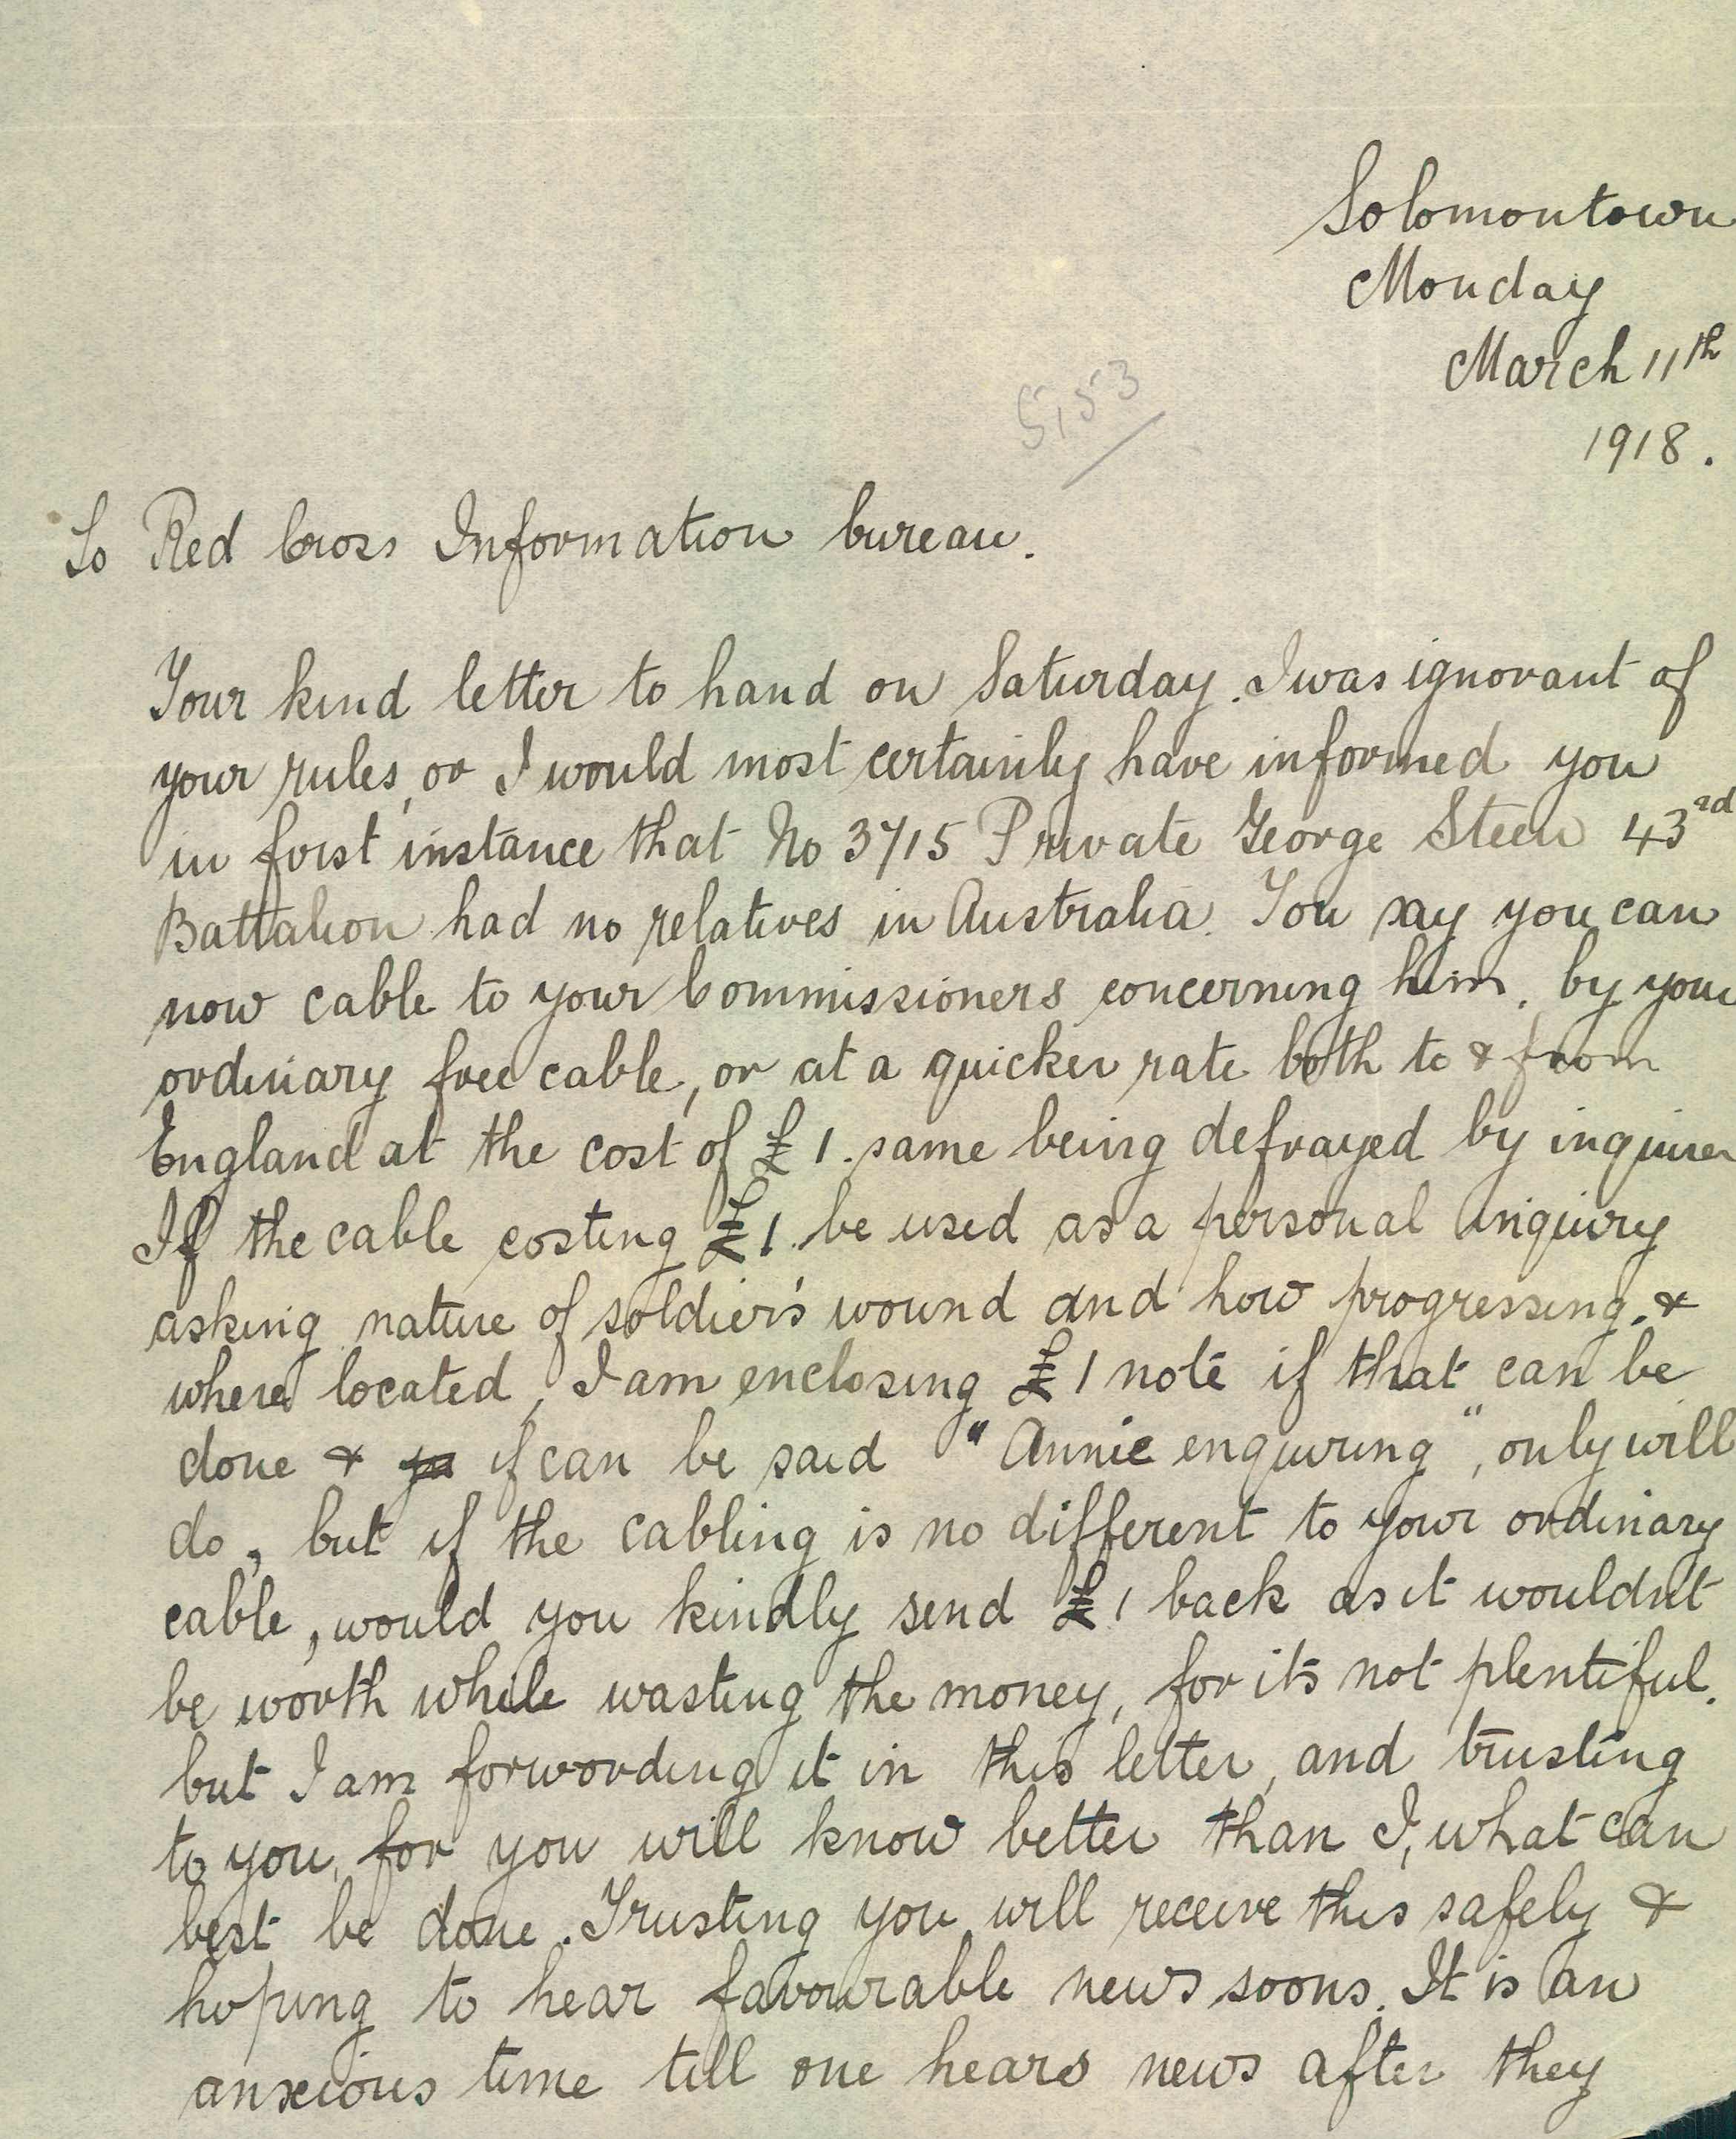 Solomontown
Monday
March 11th
1918.
5,553
To Red Cross Information bureau.
Your kind letter to hand on Saturday. I was ignorant of
your rules, or I would most certainly have informed you
in first instance that No 3715 Private George Steen 43rd
Battalion had no relatives in Australia. You say you can
now cable to your Commissioners concerning him, by your
ordinary free cable, or at a quicker rate both to & from
England at the cost of £1. same being defrayed by inquirer
If the cable costing £1. be used as a personal inquiry
asking nature of soldier's wound and how progressing. &
where located, I am enclosing £1 note if that can be
done & if can be said "Annie enquiring", only will
do, but if the cabling is no different to your ordinary
cable, would you kindly send £1 back as it wouldn't
be worth while wasting the money, for it's not plentiful.
but I am forwording it in this letter, and trusting
to you, for you will know better than I, what can
best be done. Trusting you will receive this safely &
hoping to hear favourable news soons. It is an
anxious time till one hears news after they